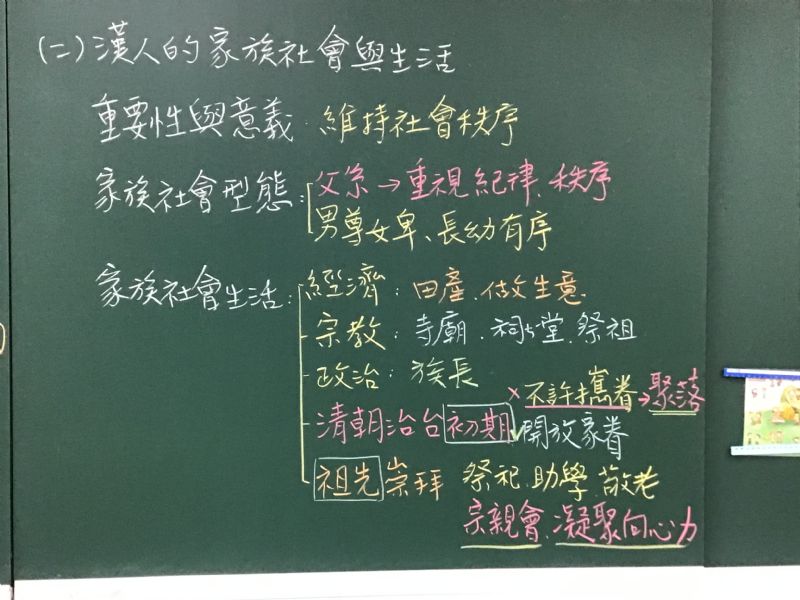 (二)漢人的家族社會與生活
重要性與意義：維持社會秩序
家族社會型態：父系→重視紀律、秩序
男尊女卑、長幼有序
家族社會生活：經濟：田產、做生意
宗教：寺廟、祠堂、祭祖
政治：族長
×不許攜眷→聚落
清朝治台初期✓開放家眷
祖先崇拜 祭祀、助學、敬老
宗親會、凝聚向心力